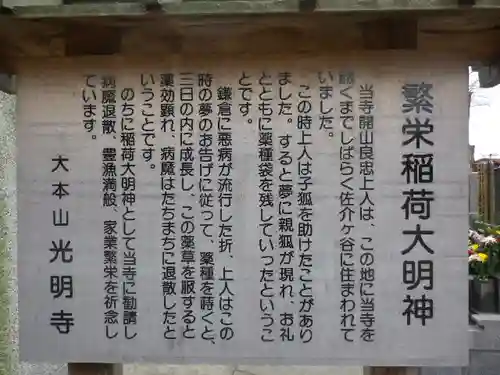 繁栄稲荷大明神
当寺開山良忠上人は、この地に当寺を
開くまでしばらく佐介ヶ谷に住まわれて
いました。
この時上人は子狐を助けたことがあり
ました。すると夢に親狐が現れ、お礼
とともに薬種袋を残していったというこ
とです。
鎌倉に悪病が流行した折、上人はこの
時の夢のお告げに従って、薬種を蒔くと、
三日の内に成長し、この薬草を服すると
薬効顕れ、病魔はたちまちに退散したと
いうことです。
のちに稲荷大明神として当寺に勧請し
病魔退散、豊漁満般、家業繁栄を祈念し
ています。
大本山光明寺